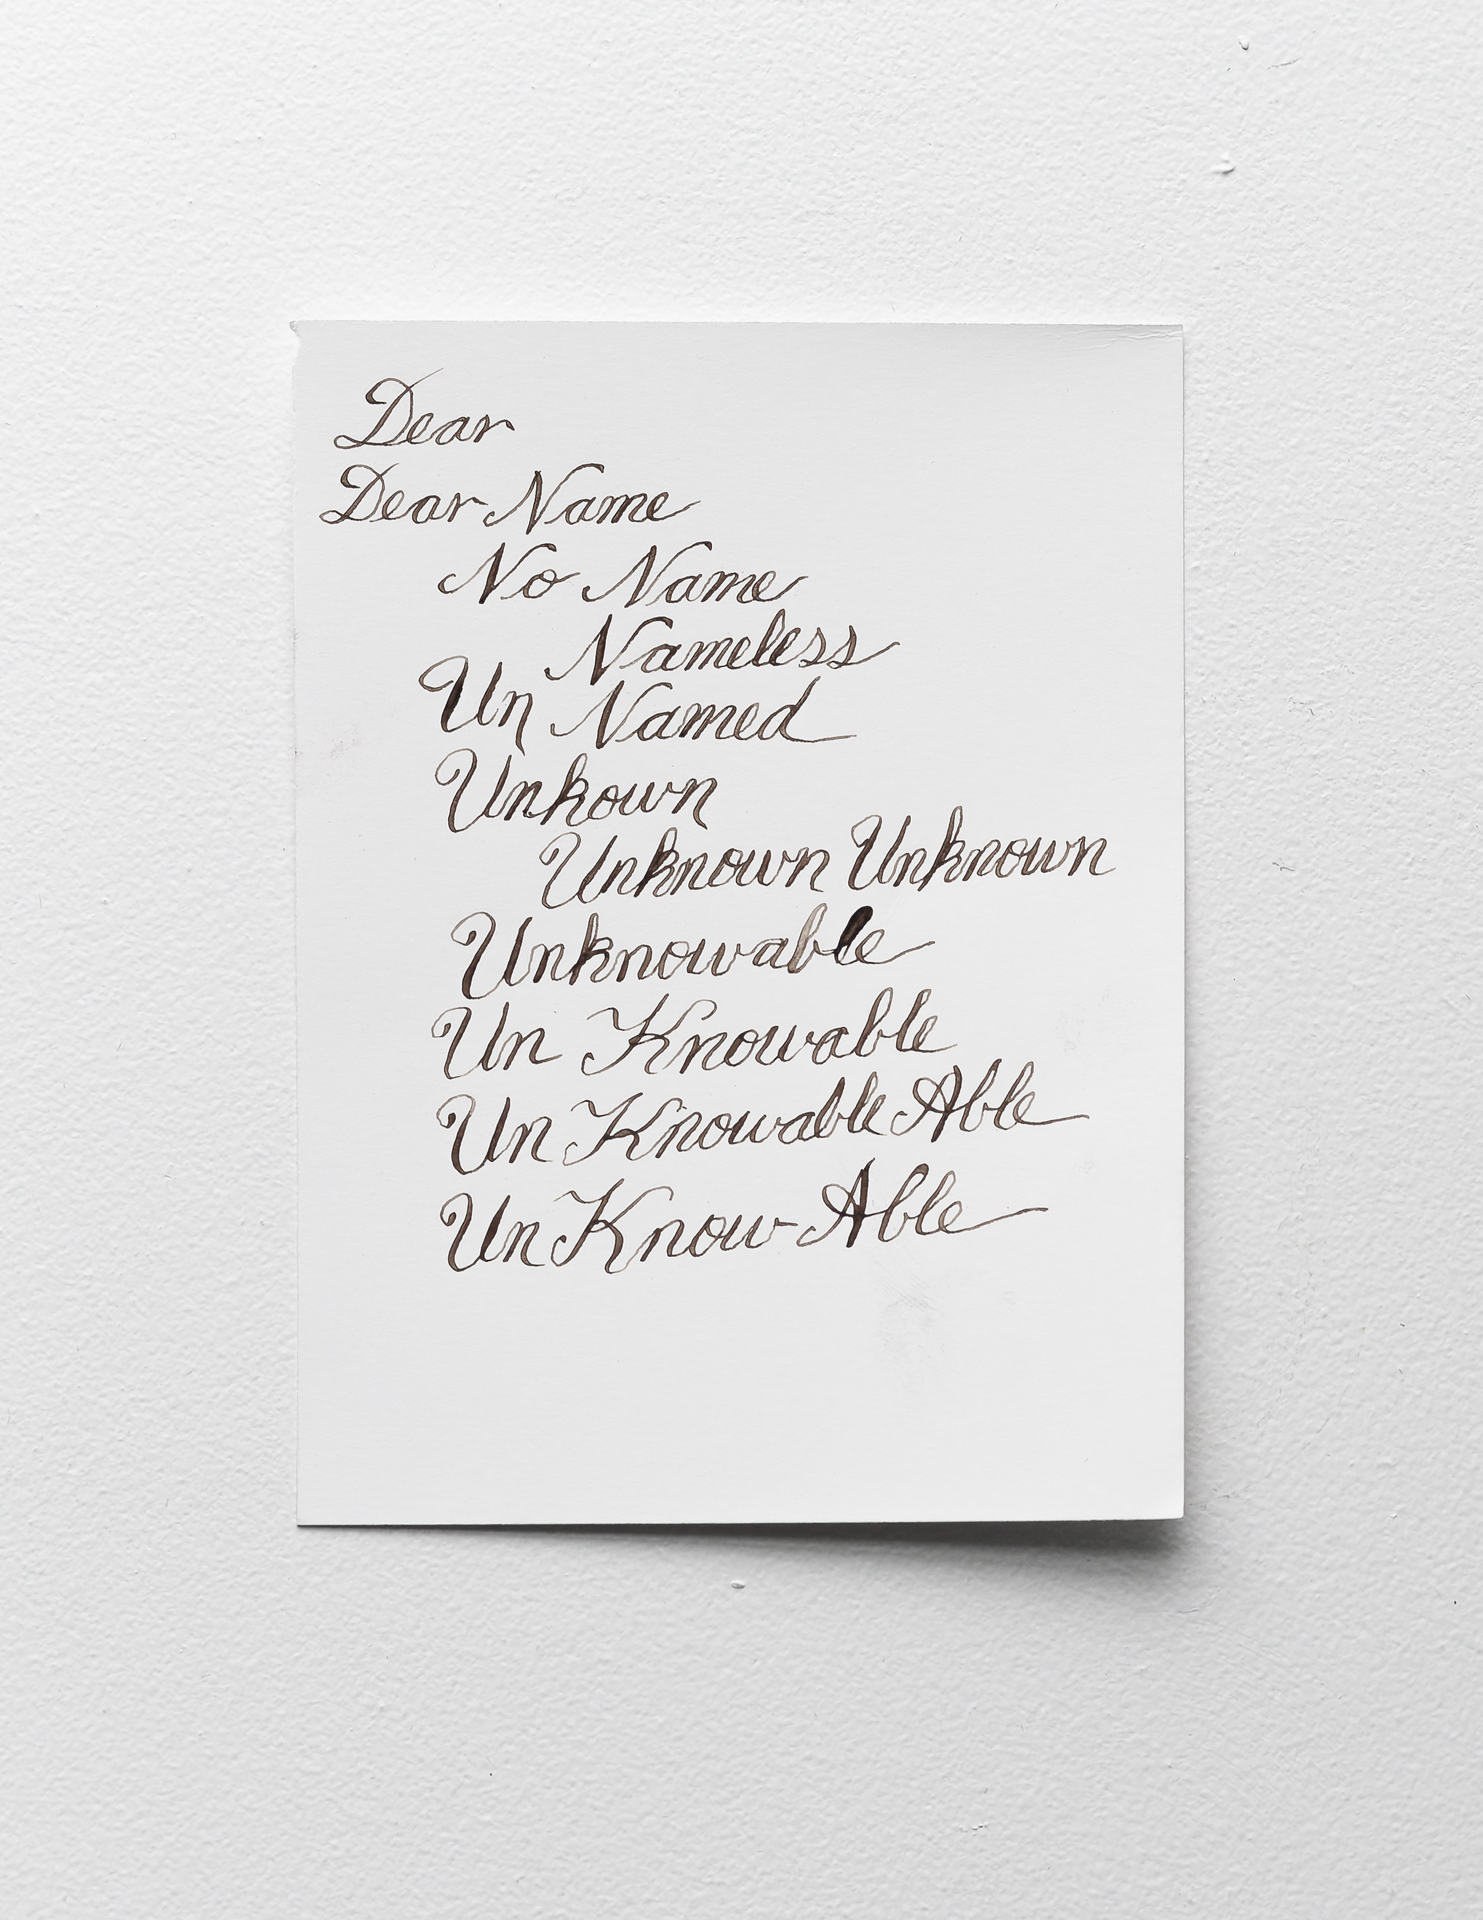 Dear
Dear Name
No Name
Nameless
Un Named
Unkown
Unknown Unknown
Unknowable
Un Knowable
Un Knowable Able
Un Know Able